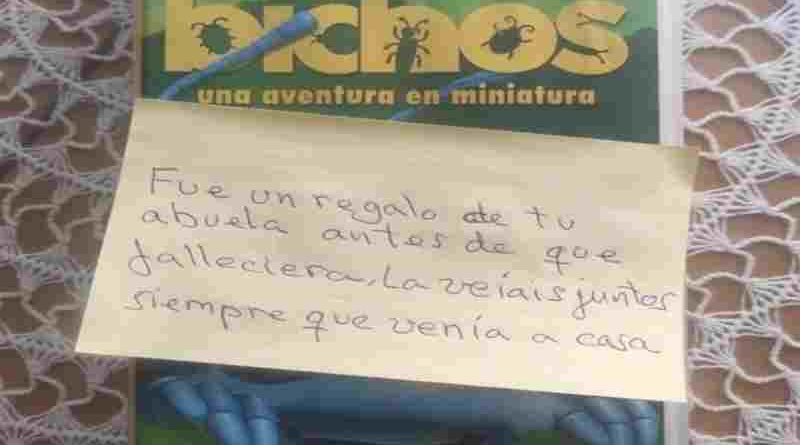 bichos
una aventura en miniatura
Fue un regalo de tu
abuela antes de que
falleciera, La veíais juntos
siempre que venía a casa